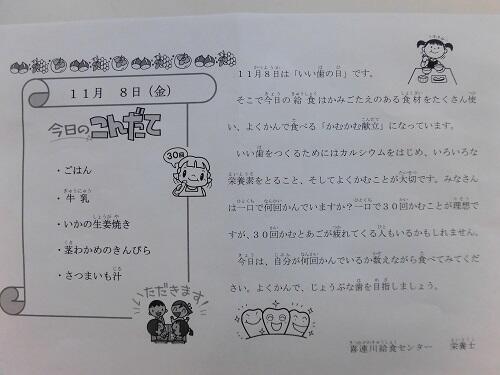 11月　8日（金）
今日のこんだて
30回
・ごはん
・牛乳
・いかの生姜焼き
・茎わかめのきんぴら
・さつまいも汁
いただきます
11月8日は「いい歯の日」です。
そこで今日の給食はかみごたえのある食材をたくさん使
い、よくかんで食べる「かむかむ献立」になっています。
いい歯をつくるためにはカルシウムをはじめ、いろいろな
栄養素をとること、そしてよくかむことが大切です。みなさん
は一口で何回かんでいますか？一口で30回かむことが理想で
すが、30回かむとあごが疲れてくる人もいるかもしれません。
今日は、自分が何回かんでいるか数えながら食べてみてくだ
さい。よくかんで、じょうぶな歯を目指しましょう。
喜連川給食センター　栄養士